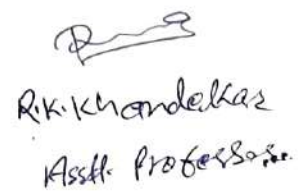 R.K. Khandekar
Asstt. Professor...